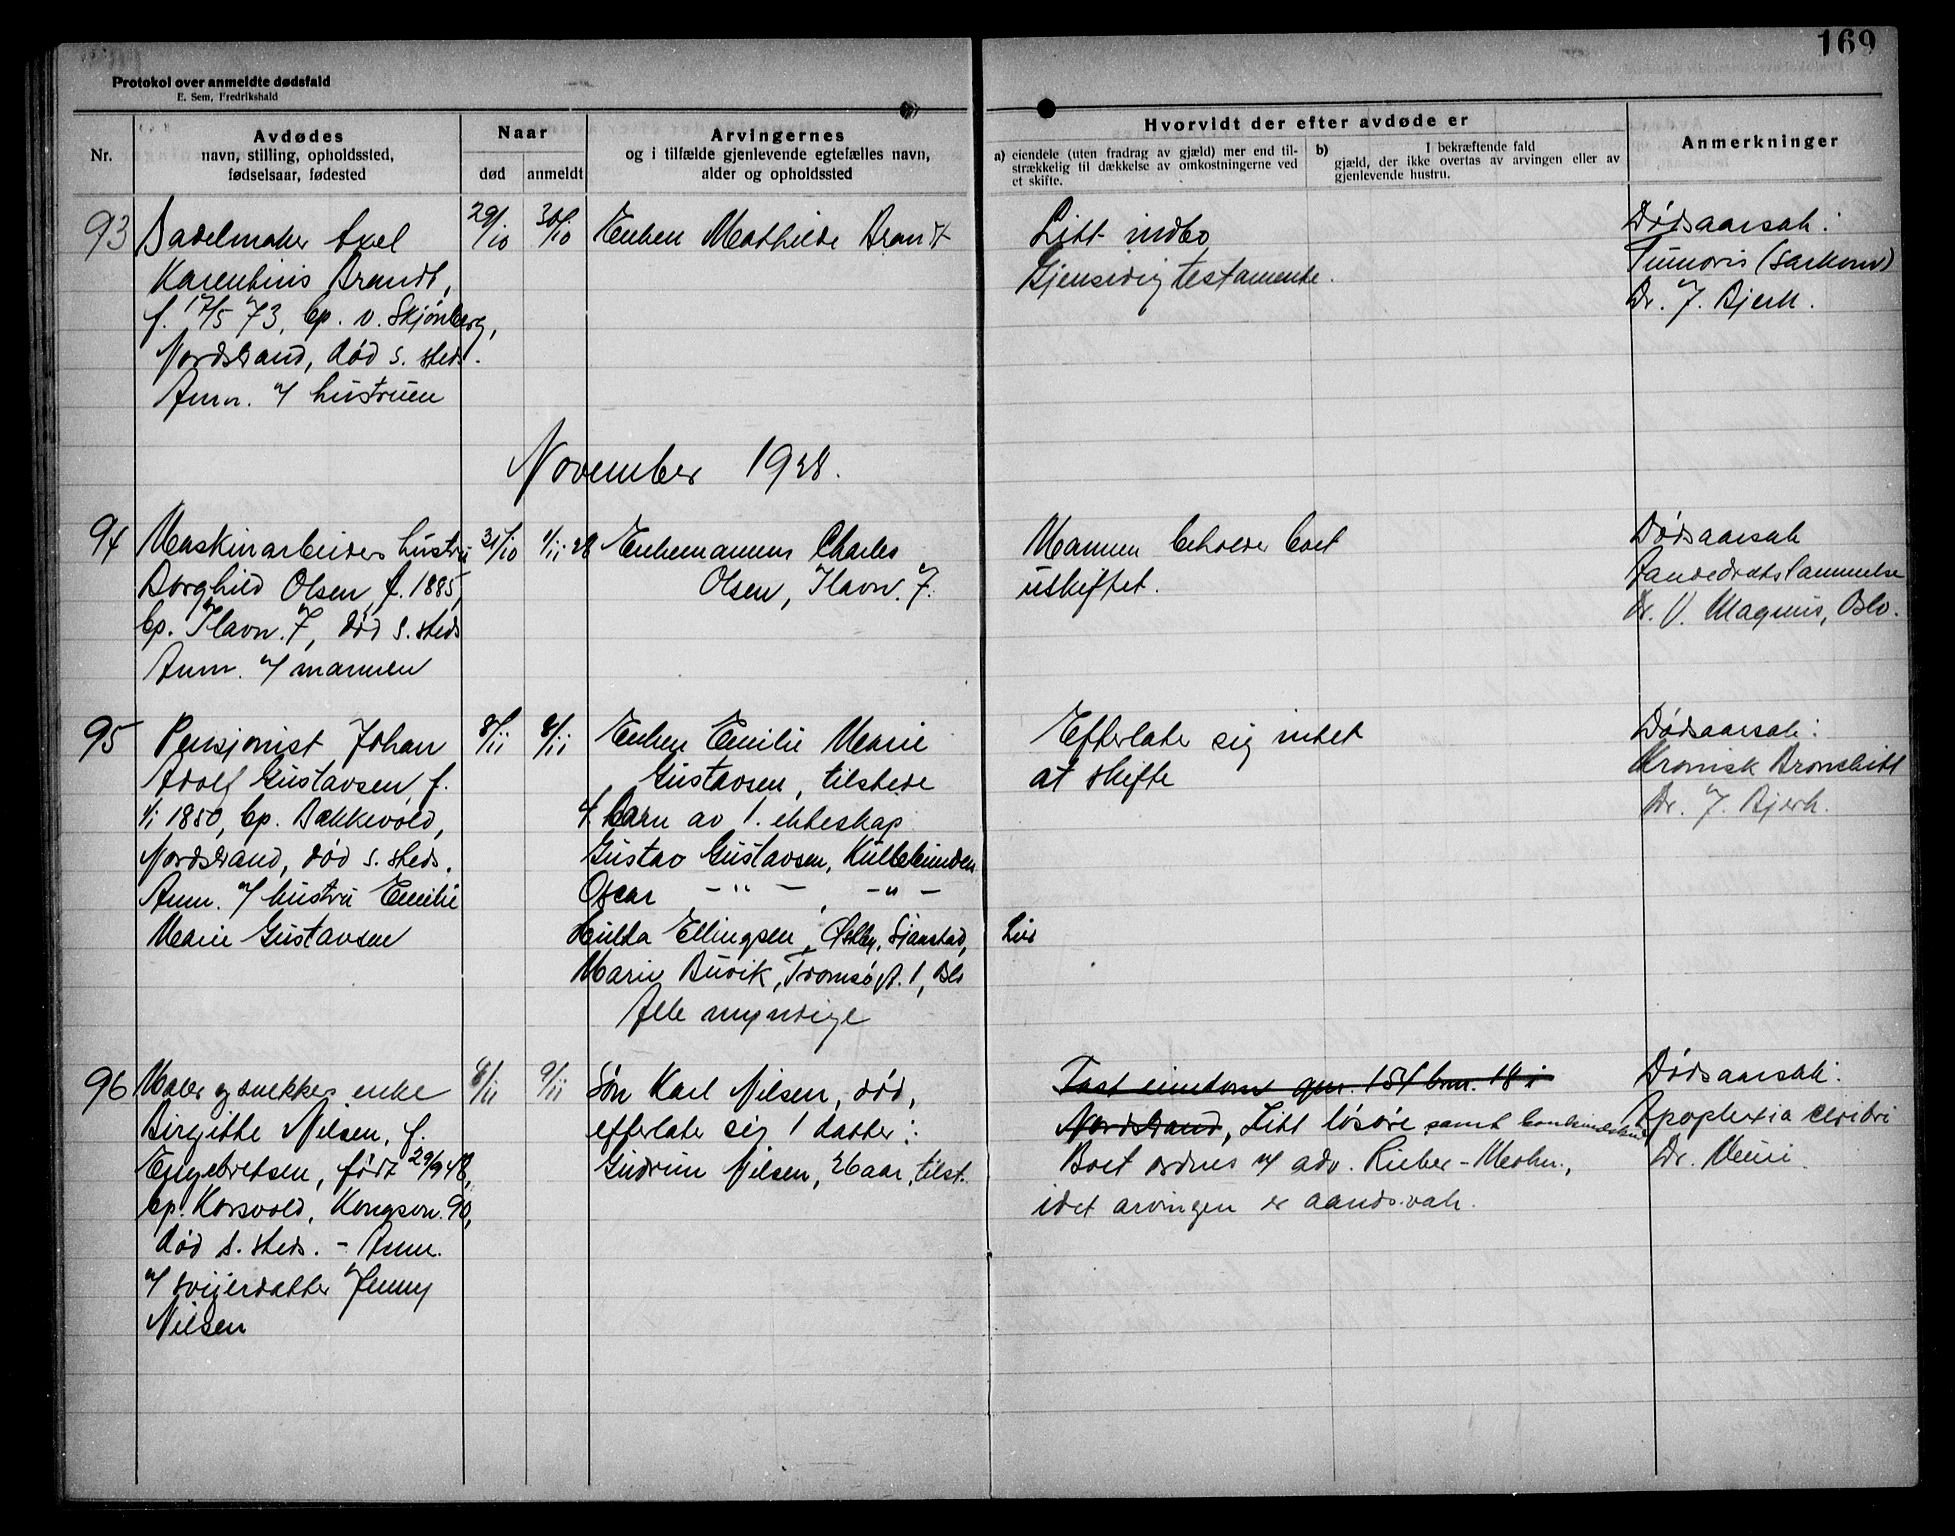 169
Protokol over anmeldte dødsfald
E. Sem, Fredrikshald
Nr.
Avdødes
navn, stilling, opholdssted,
fødselsaar, fødested
Naar
død
anmeldt
Arvingernes
og i tilfælde gjenlevende egtefælles navn,
alder og opholdssted
Hvorvidt der efter avdøde er
a) eiendele (uten fradrag av gjæld) mer end til-
strækkelig til dækkelse av omkostningerne ved
et skifte.
b) I bekræftende fald
gjæld, der ikke overtas av arvingen eller av
gjenlevende hustru.
Anmerkninger
93
Sadelmaker Axel
Karentius Brandt,
f. 17/5 73, bp. v. Skjønberg,
Nordstrand, død s. steds.
Anm. af hustruen
29/10
30/10
Enken Mathilde Brandt
Litt indbo
Gjensidig testamente.
Dødsaarsak:
Tumoris (Sarkom)
Dr. J. Bjerk.
November 1928.
94
Maskinarbeiders hustru
Borghild Olsen, f. 1885,
bp. Ilavn. 7, død s. steds
Anm. af mannen
31/10
1/11 28
Enkemannen Charles
Olsen, Ilavn. 7.
Mannen beholder boet
uskiftet.
Dødsaarsak
Aandedrætslammelse
Dr. V. Magnus, Oslo.
95
Pensjonist Johan
Adolf Gustavsen, f.
1/1 1850, bp. Bækkevold,
Nordstrand, død s. steds.
Anm. af hustru Emilie
Marie Gustavsen
8/11
8/11
Enken Emilie Marie
Gustavsen, tilstede
4 barn av 1. ekteskap
Gustav Gustavsen, Kullebunden
Oscar - " - , - " -
Hulda Ellingsen, Østby, Sjaastad, Lier
Marie Buvik, Tromsøgt. 1, Oslo
Alle myndige
Efterlater sig intet
at skifte
Dødsaarsak:
Kronisk Bronchitt
Dr. J. Bjerk.
96
Maler og snekkes enke
Birgitte Nilsen, f.
Engebretsen, født 29/9 48,
bp. Korsvold, Kongsvn. 90,
død s. steds. - Anm.
af svigerdatter Jenny
Nilsen
8/11
9/11
Søn Karl Nilsen, død,
efterlater sig 1 datter:
Gudrun Nilsen, 26 aar, tilst.
Fast eiendom gnr. 154 bnr. 18 i
Nordstrand, Litt løsøre samt
Boet ordnes af adv. Rieber-Mohn,
idet arvingen er aandsvak.
Dødsaarsak:
Apoplexia cerebri
Dr.